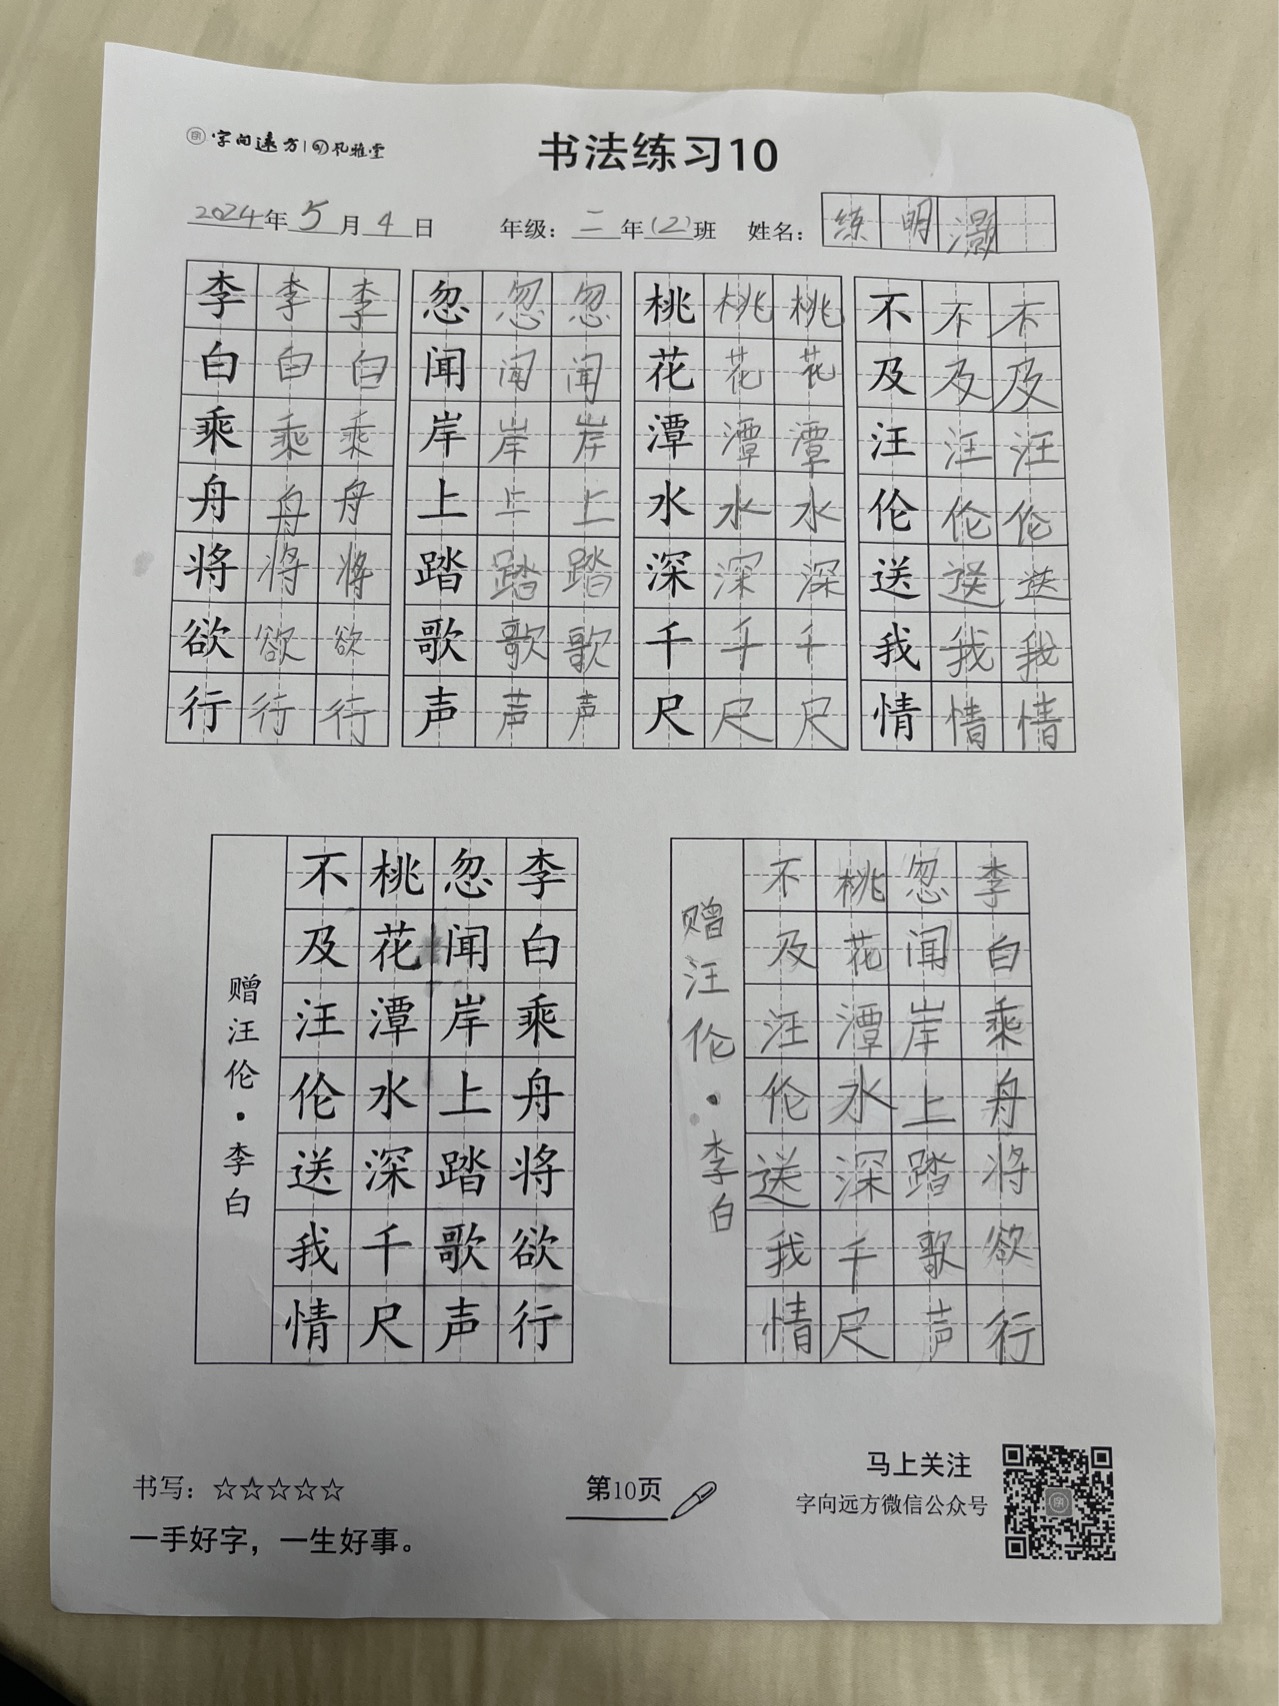 字向远方 孔雅堂
书法练习10
2024年5月4日 年级：二年(2)班 姓名：练明灏
李李李 忽忽忽 桃桃桃 不不不
白白白 闻闻闻 花花花 及及及
乘乘乘 岸岸岸 潭潭潭 汪汪汪
舟舟舟 上上上 水水水 伦伦伦
将将将 踏踏踏 深深深 送送送
欲欲欲 歌歌歌 千千千 我我我
行行行 声声声 尺尺尺 情情情
李白乘舟将欲行
忽闻岸上踏歌声
桃花潭水深千尺
不及汪伦送我情
赠汪伦·李白
李白乘舟将欲行
忽闻岸上踏歌声
桃花潭水深千尺
不及汪伦送我情
赠汪伦·李白
书写：☆☆☆☆☆
一手好字，一生好事。
第10页
马上关注
字向远方微信公众号